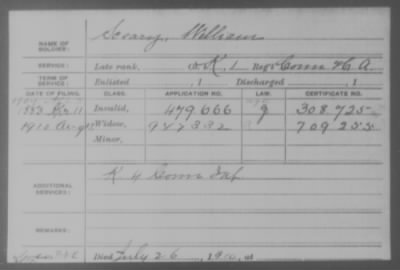 NAME OF SOLDIER: Scoary, William
SERVICE: Late rank, K, 1 Reg't Conn H. A.
TERM OF SERVICE: Enlisted , 1 Discharged , 1
DATE OF FILING. CLASS. APPLICATION NO. LAW. CERTIFICATE NO.
1883 11 Invalid, 479 666 g 308 725
1910 Aug Widow, 947332 709 255
Minor,
ADDITIONAL SERVICES: K 4 Conn Inf.
REMARKS:
Died July 26, 1910, at